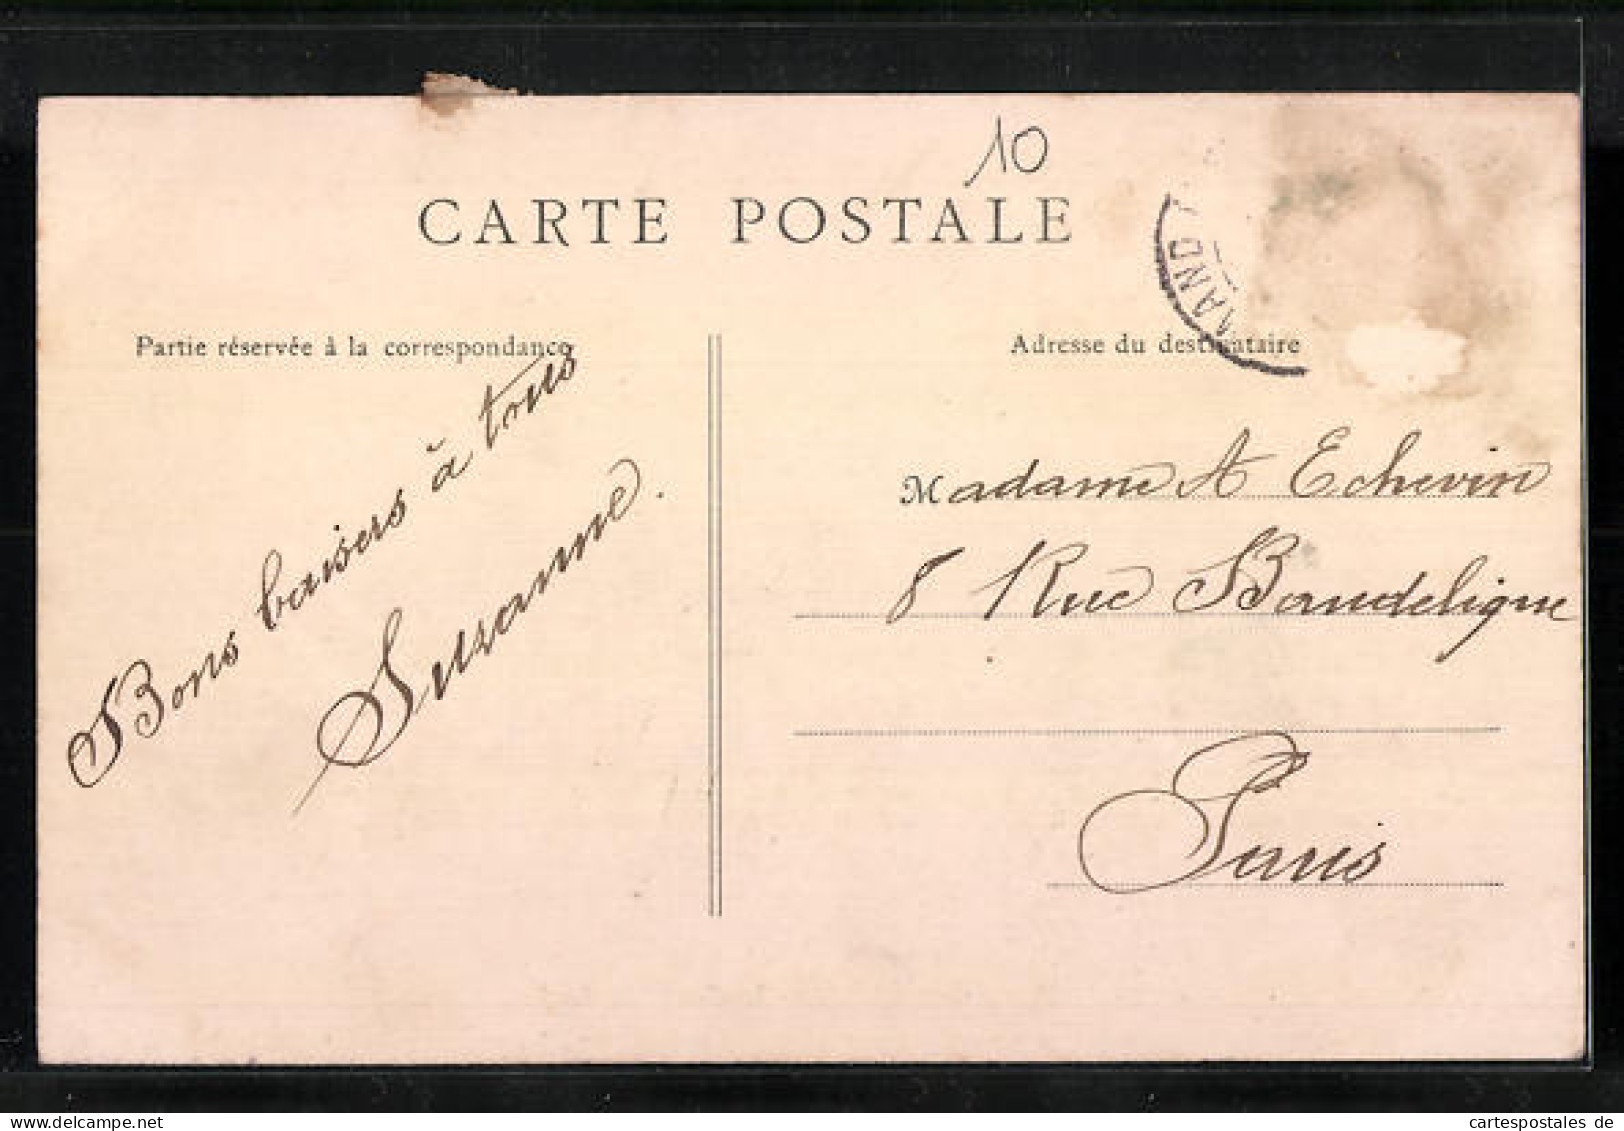 10
CARTE POSTALE
Partie réservée à la correspondance
Adresse du destinataire
Bons baisers à tous
Suzanne.
Madame A Echevin
8 Rue Baudelique
Paris
cartespostales de